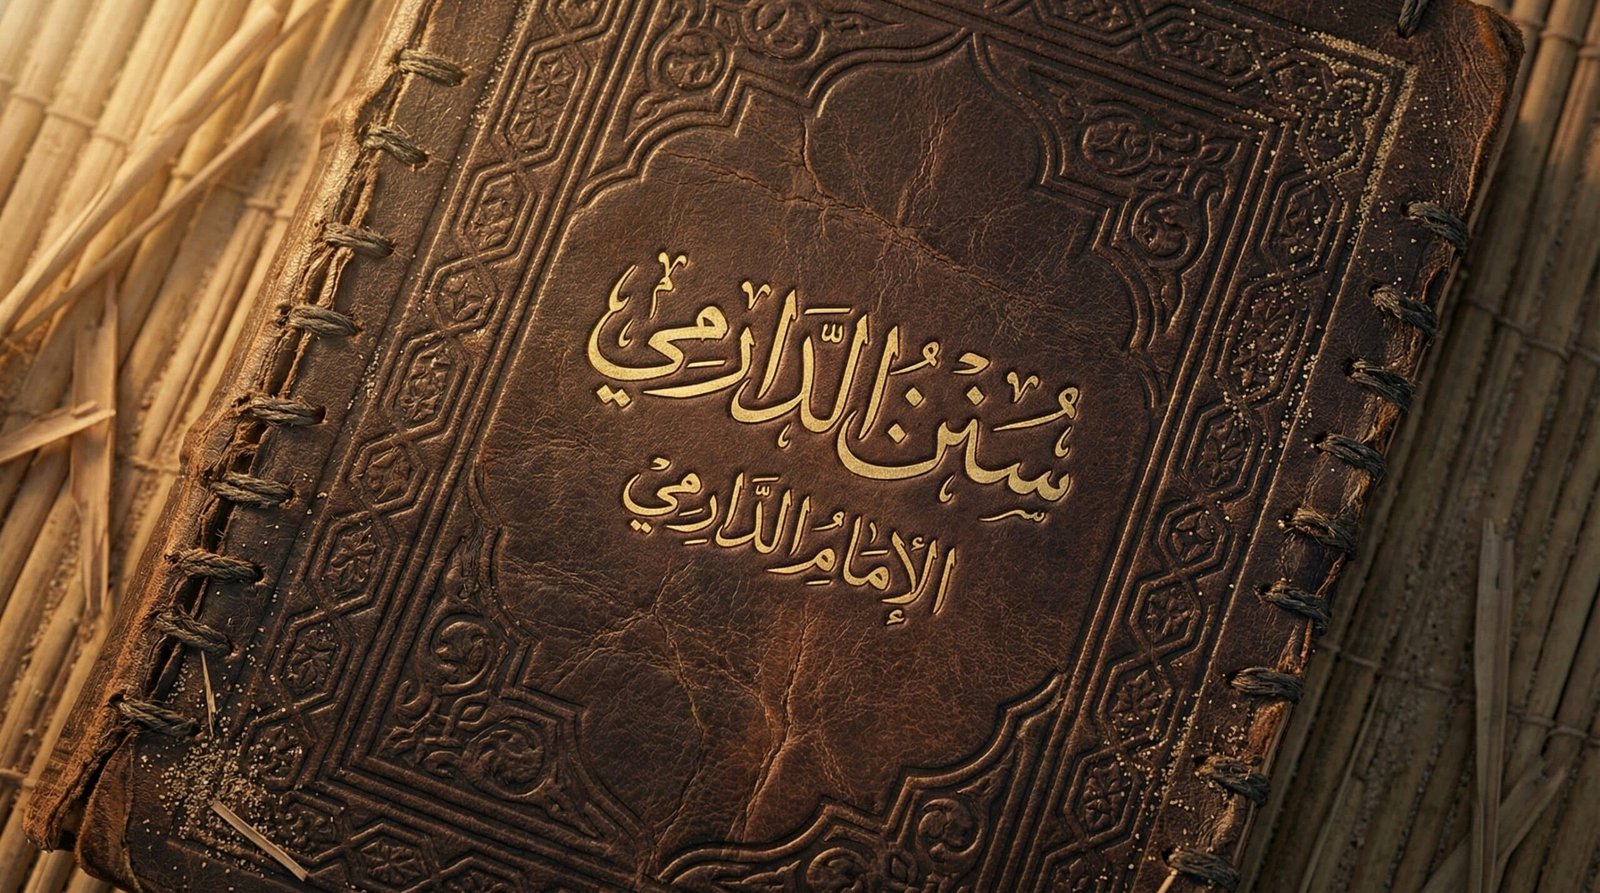 سُنَنُ الدَّارِمِي
الإِمَامُ الدَّارِمِي